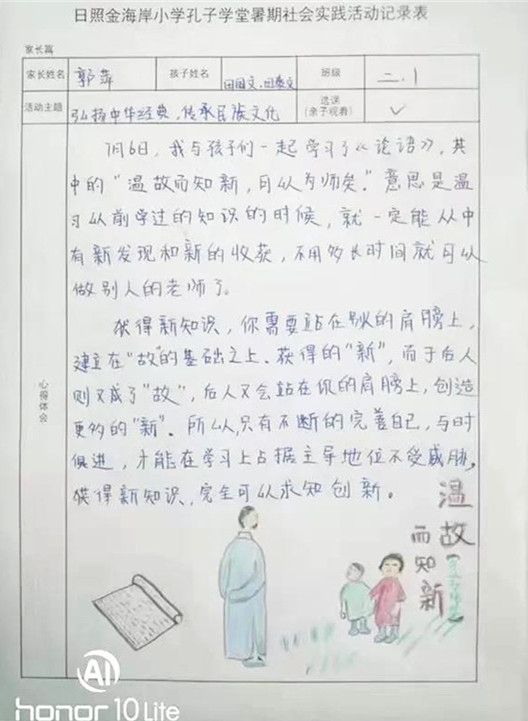 日照金海岸小学孔子学堂暑期社会实践活动记录表
家长篇
家长姓名 郭萍 孩子姓名 班级 二.1
活动主题 弘扬中华经典,传承民族文化 选课(亲子观看) ✓
7月6日,我与孩子们一起学习了《论语》,其
中的“温故而知新,可以为师矣。”意思是温
习以前学过的知识的时候,就一定能从中
有新发现和新的收获,不用多长时间就可以
做别人的老师了。
获得新知识,你需要站在别人的肩膀上,
建立在“故”的基础之上.获得的“新”,而于后人
则又成了“故”,后人又会站在你的肩膀上,创造
更多的“新”.所以,只有不断的完善自己,与时
俱进,才能在学习上占据主导地位不受威胁,
获得新知识,完全可以求知创新。
心得体会
温故
而知新
AI
honor 10 Lite